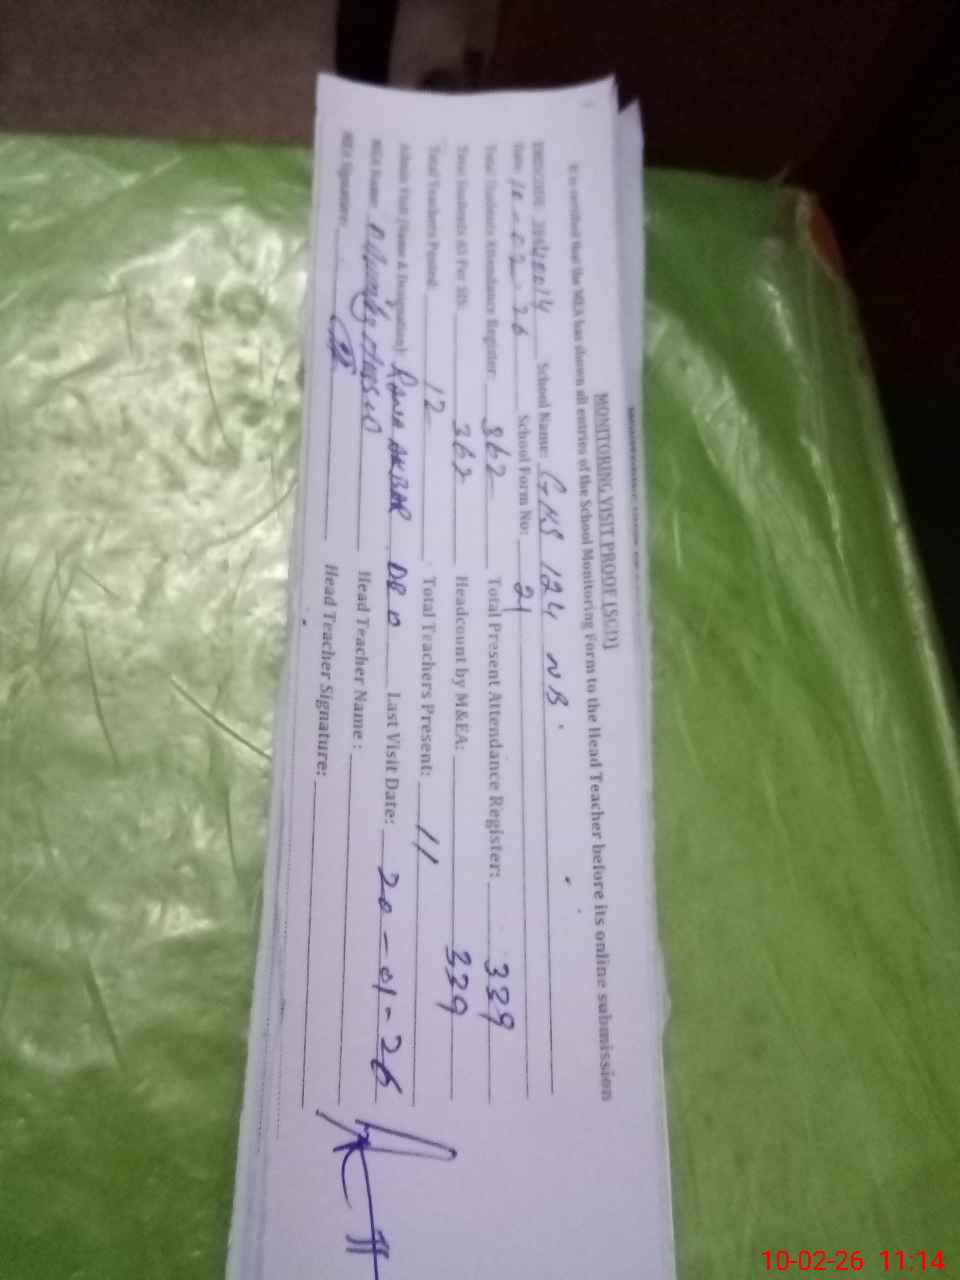 MONITORING VISIT PROOF [SCD]
It is certified that the MEA has shown all entries of the School Monitoring Form to the Head Teacher before its online submission
EMISCODE School Name: GMS 124 NB
Date: 10-02-26 School Form No: 21
Total Students Attendance Register: 362 Total Present Attendance Register: 339
Total Students Per SIS: 362 Headcount by M&EA: 339
Total Teachers Posted: 12 Total Teachers Present: 11
Admin Visit (Name & Designation): Rana AKBAR Last Visit Date: 20-01-26
MEA Name: Head Teacher Name :
MEA Signature: Head Teacher Signature:
10-02-26 11:14